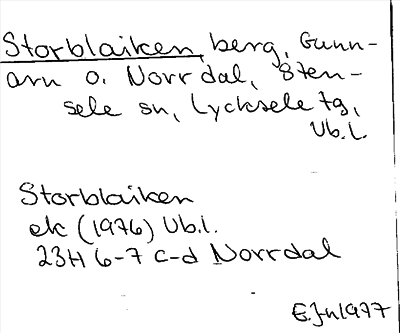 Storblaiken, berg, Gunn-
arn o. Norrdal, Sten-
sele sn, Lycksele tg,
Vb.l.
Storblaiken
ek (1976) Vb.l.
23H 6-7 c-d Norrdal
1977